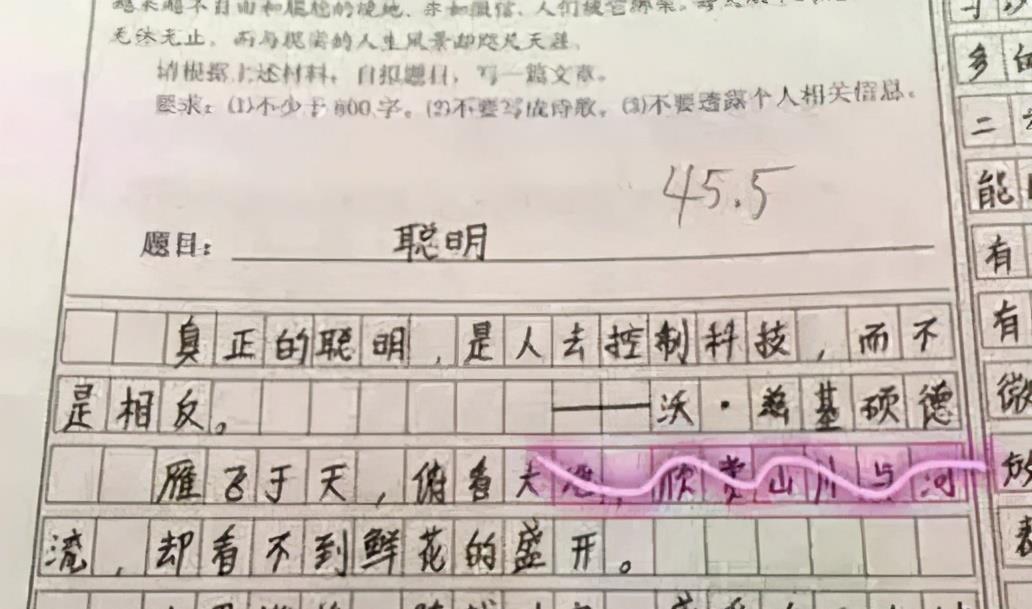 无休无止，而与现实的人生风景却咫尺天涯。
请根据上述材料，自拟题目，写一篇文章。
要求：(1)不少于800字。(2)不要写成诗歌。(3)不要透露个人相关信息。
45.5
题目：聪明
真正的聪明，是人去控制科技，而不
是相反。——沃·兹基硕德
雁飞于天，俯看大地，欣赏山川与河
流，却看不到鲜花的盛开。
多
二
能
有
有
微